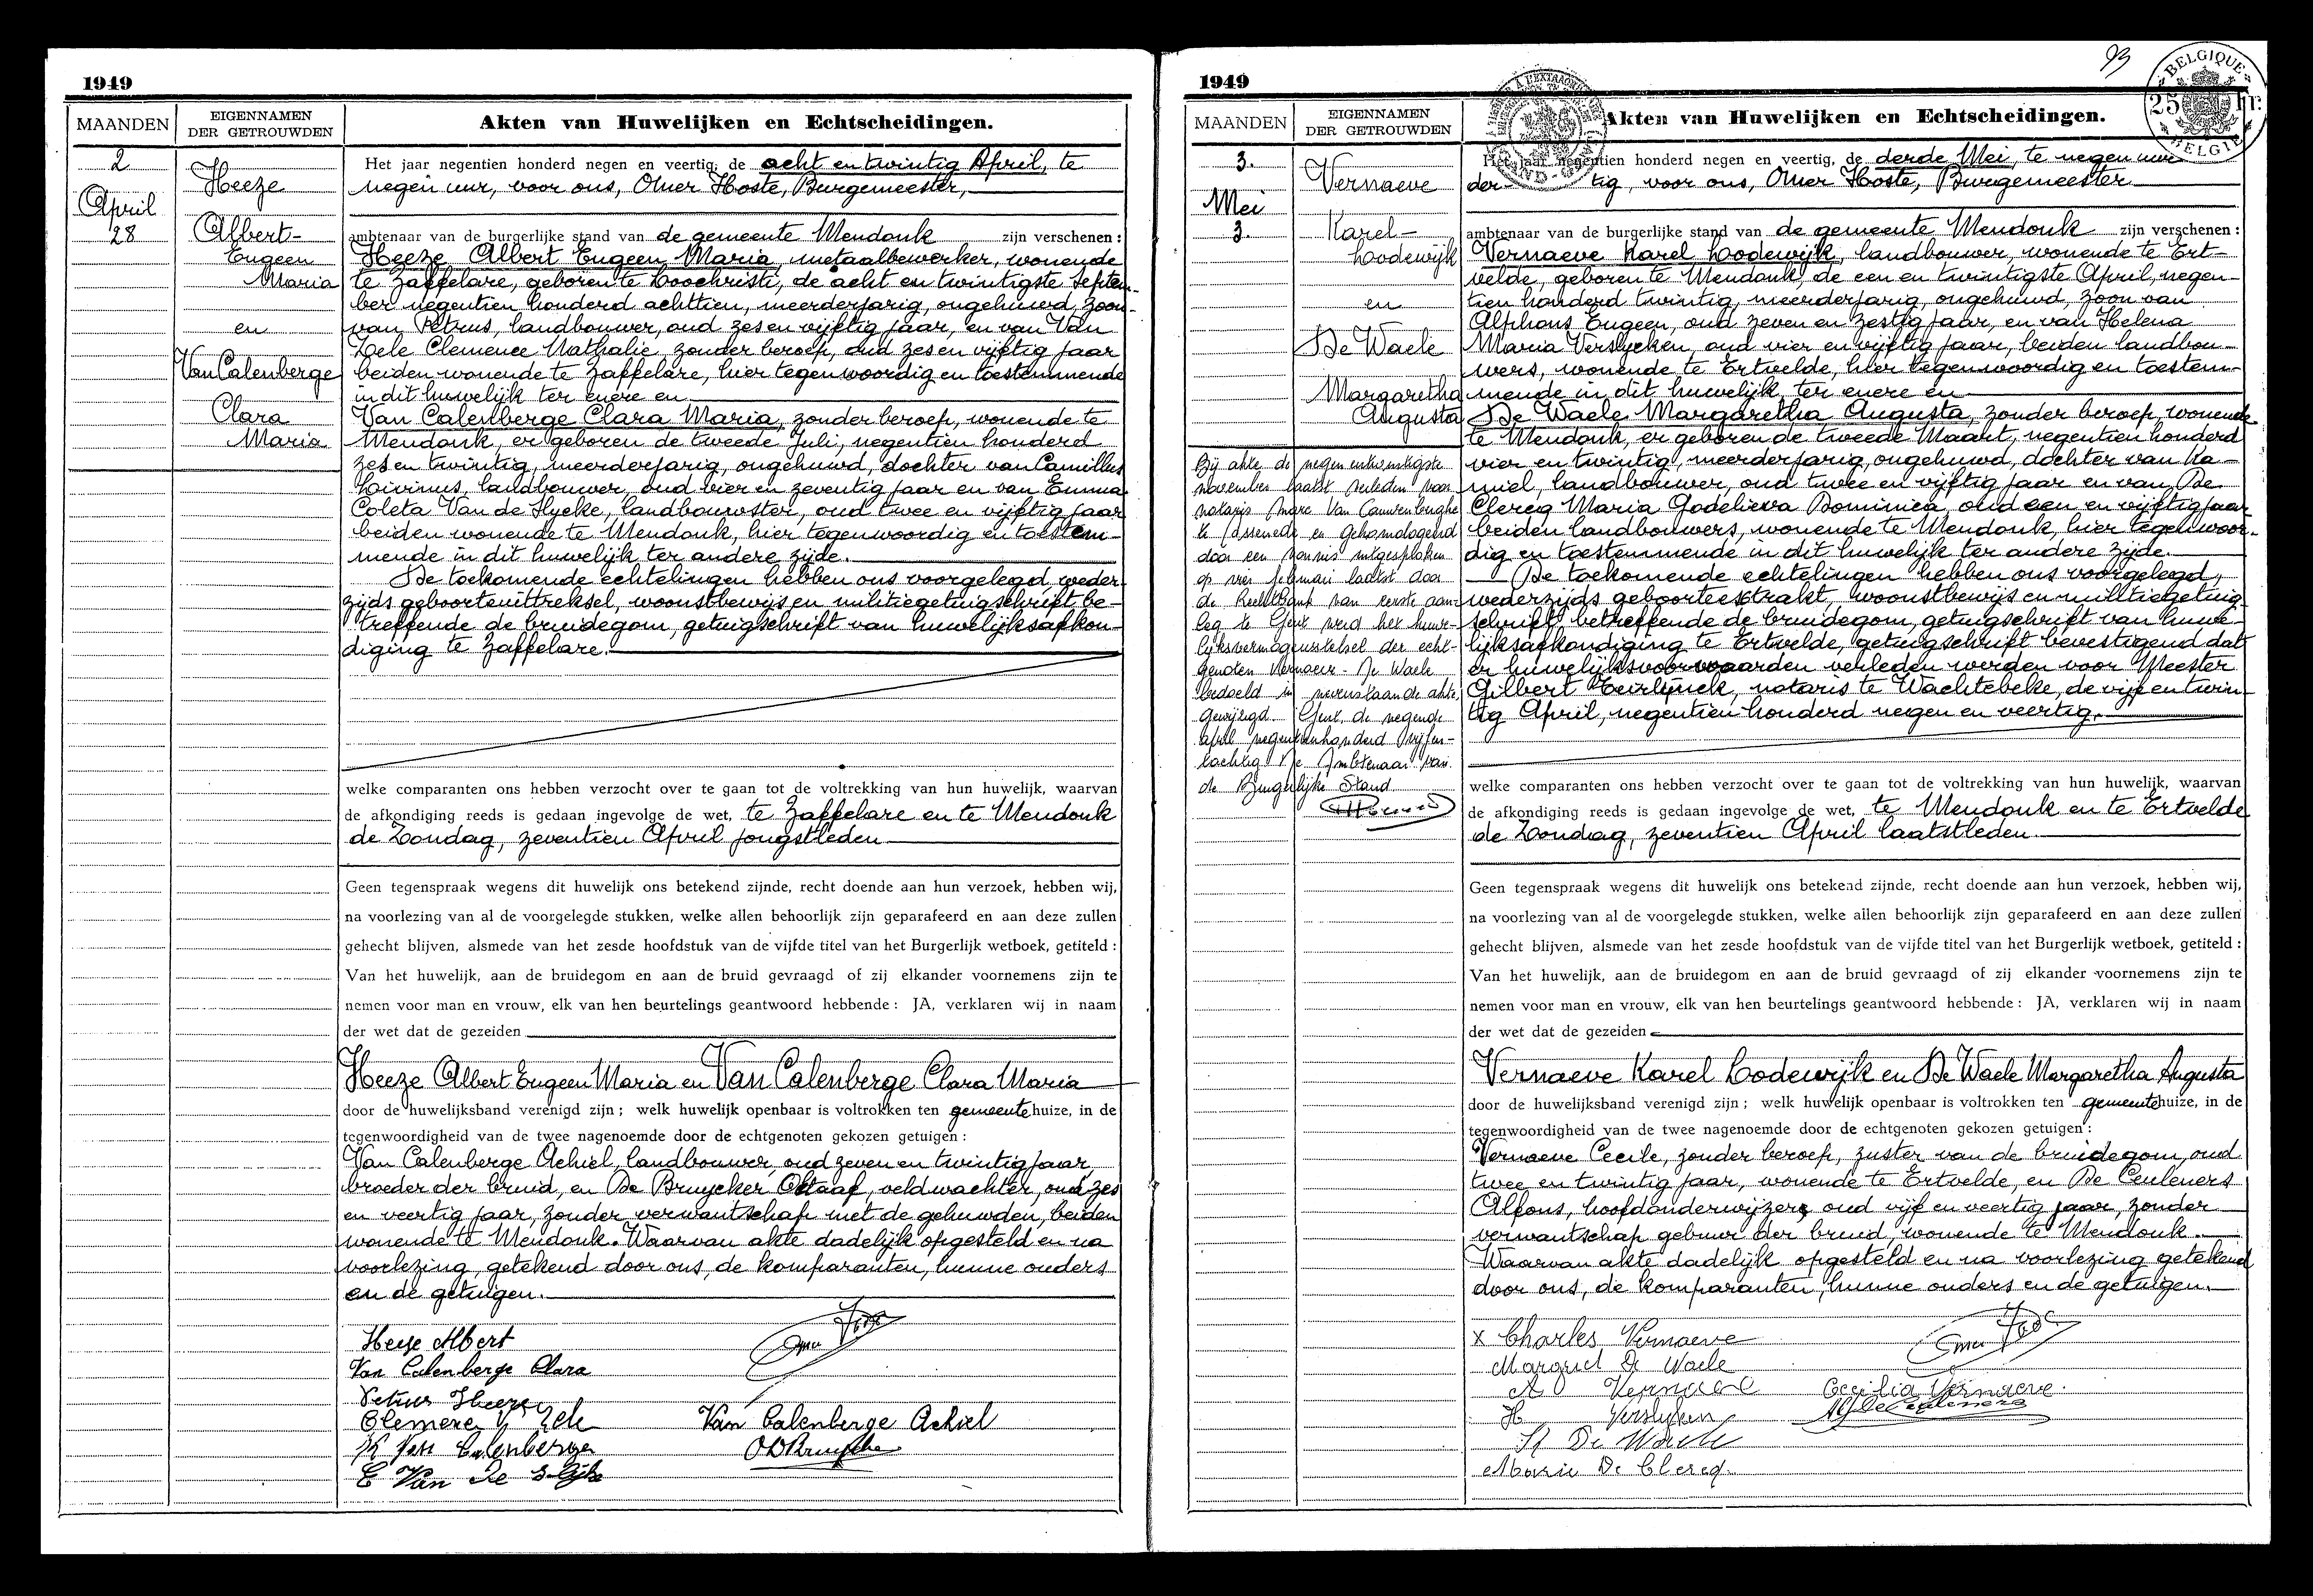 1949
MAANDEN
EIGENNAMEN
DER GETROUWDEN
Akten van Huwelijken en Echtscheidingen.
2
April
28
Heeze
Albert-
Eugeen
Maria
en
Van Calenberge
Clara
Maria
Het jaar negentien honderd negen en veertig, de acht en twintig April, te
negen uur, voor ons, Omer Hoste, Burgemeester,
ambtenaar van de burgerlijke stand van de gemeente Mendonk zijn verschenen :
Heeze Albert Eugeen Maria, metaalbewerker, wonende
te Zaffelare, geboren te Loochristi, de acht en twintigste Septem-
ber negentien honderd achttien, meerderjarig, ongehuwd, zoon
van Petrus, landbouwer, oud zes en vijftig jaar, en van Van
Zele Clemence Nathalie, zonder beroep, oud zes en vijftig jaar
beiden wonende te Zaffelare, hier tegenwoordig en toestemmende
in dit huwelijk ter enere en
Van Calenberge Clara Maria, zonder beroep, wonende te
Mendonk, er geboren de tweede Juli, negentien honderd
zes en twintig, meerderjarig, ongehuwd, dochter van Camillus
Livinus, landbouwer, oud vier en zeventig jaar en van Emma
Coleta Van de Slycke, landbouwster, oud twee en vijftig jaar
beiden wonende te Mendonk, hier tegenwoordig en toestem-
mende in dit huwelijk ter andere zijde.
De toekomende echtelingen hebben ons voorgelegd, weder-
zijds geboorteuittreksel, woonstbewijs en militiegetuigschrift be-
treffende de bruidegom, getuigschrift van huwelijksafkon-
diging te Zaffelare.
welke comparanten ons hebben verzocht over te gaan tot de voltrekking van hun huwelijk, waarvan
de afkondiging reeds is gedaan ingevolge de wet, te Zaffelare en te Mendonk
de Zondag, zeventien April jongstleden
Geen tegenspraak wegens dit huwelijk ons betekend zijnde, recht doende aan hun verzoek, hebben wij,
na voorlezing van al de voorgelegde stukken, welke allen behoorlijk zijn geparafeerd en aan deze zullen
gehecht blijven, alsmede van het zesde hoofdstuk van de vijfde titel van het Burgerlijk wetboek, getiteld :
Van het huwelijk, aan de bruidegom en aan de bruid gevraagd of zij elkander voornemens zijn te
nemen voor man en vrouw, elk van hen beurtelings geantwoord hebbende : JA, verklaren wij in naam
der wet dat de gezeiden
Heeze Albert Eugeen Maria en Van Calenberge Clara Maria
door de huwelijksband verenigd zijn ; welk huwelijk openbaar is voltrokken ten gemeentehuize, in de
tegenwoordigheid van de twee nagenoemde door de echtgenoten gekozen getuigen :
Van Calenberge Achiel, landbouwer, oud zeven en twintig jaar,
broeder der bruid, en De Bruycker Octaaf, veldwachter, oud zes
en veertig jaar, zonder verwantschap met de gehuwden, beiden
wonende te Mendonk. Waarvan akte dadelijk opgesteld en na
voorlezing, getekend door ons, de komparanten, hunne ouders
en de getuigen.
Heeze Albert
Van Calenberge Clara
Petrus Heeze
Clemence V Zele
K Van Calenberge
E Van De Slijke
Van Calenberge Achiel
1949
93
BELGIQUE
25 fr.
BELGIE
MAANDEN
EIGENNAMEN
DER GETROUWDEN
Akten van Huwelijken en Echtscheidingen.
3.
Mei
3.
Vernaeve
Karel-
Lodewijk
en
De Waele
Margaretha
Augusta
Bij akte de negenentwintigste
november laatst verleden voor
notaris Marc Van Cauwenberghe
te Assenede en gehomologeerd
door een vonnis uitgesproken
op vier februari laatst door
de Rechtbank van eerste aan-
leg te Gent werd het huwe-
lijksvermogensstelsel der echt-
genoten Vernaeve - De Waele
bedoeld in nevenstaande akte
gewijzigd. Gent, de negende
april negentienhonderd vijfen-
tachtig De Ambtenaar van
de Burgerlijke Stand
Het jaar negentien honderd negen en veertig, de derde Mei, te negen uur
der- tig, voor ons, Omer Hoste, Burgemeester
ambtenaar van de burgerlijke stand van de gemeente Mendonk zijn verschenen :
Vernaeve Karel Lodewijk, landbouwer, wonende te Ert-
velde, geboren te Mendonk, de een en twintigste April, negen-
tien honderd twintig, meerderjarig, ongehuwd, zoon van
Alphons Eugeen, oud zeven en zestig jaar, en van Helena
Maria Verslycken, oud vier en vijftig jaar, beiden landbou-
wers, wonende te Ertvelde, hier tegenwoordig en toestem-
mende in dit huwelijk ter enere en
De Waele Margaretha Augusta, zonder beroep, wonende
te Mendonk, er geboren de tweede Maart, negentien honderd
vier en twintig, meerderjarig, ongehuwd, dochter van Ka-
miel, landbouwer, oud twee en vijftig jaar en van De
Clercq Maria Godelieva Dominica, oud een en vijftig jaar
beiden landbouwers, wonende te Mendonk, hier tegenwoor-
dig en toestemmende in dit huwelijk ter andere zijde.
De toekomende echtelingen hebben ons voorgelegd,
wederzijds geboorteextrakt, woonstbewijs en militiegetuig-
schrift, betreffende de bruidegom, getuigschrift van huwe-
lijksafkondiging te Ertvelde, getuigschrift bevestigend dat
er huwelijksvoorwaarden verleden werden voor Meester
Gilbert Teirlynck, notaris te Wachtebeke, de vijf en twin-
tig April, negentien honderd negen en veertig.
welke comparanten ons hebben verzocht over te gaan tot de voltrekking van hun huwelijk, waarvan
de afkondiging reeds is gedaan ingevolge de wet, te Mendonk en te Ertvelde
de Zondag, zeventien April laatstleden
Geen tegenspraak wegens dit huwelijk ons betekend zijnde, recht doende aan hun verzoek, hebben wij,
na voorlezing van al de voorgelegde stukken, welke allen behoorlijk zijn geparafeerd en aan deze zullen
gehecht blijven, alsmede van het zesde hoofdstuk van de vijfde titel van het Burgerlijk wetboek, getiteld :
Van het huwelijk, aan de bruidegom en aan de bruid gevraagd of zij elkander voornemens zijn te
nemen voor man en vrouw, elk van hen beurtelings geantwoord hebbende : JA, verklaren wij in naam
der wet dat de gezeiden
Vernaeve Karel Lodewijk en De Waele Margaretha Augusta
door de huwelijksband verenigd zijn ; welk huwelijk openbaar is voltrokken ten gemeentehuize, in de
tegenwoordigheid van de twee nagenoemde door de echtgenoten gekozen getuigen :
Vernaeve Cecile, zonder beroep, zuster van de bruidegom, oud
twee en twintig jaar, wonende te Ertvelde, en De Ceuleners
Alfons, hoofdonderwijzer, oud vijf en veertig jaar, zonder
verwantschap gebuur der bruid, wonende te Mendonk.
Waarvan akte dadelijk opgesteld en na voorlezing getekend
door ons, de komparanten, hunne ouders en de getuigen.
x Charles Vernaeve
Margriet De Waele
A Vernaeve
Cecilia Vernaeve.
H Verslyken
De Waele
Maria De Clercq.